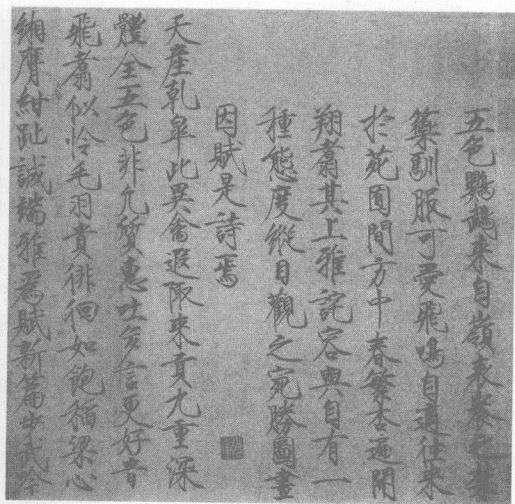 五色鸚鵡來自嶺表養之禁
籞馴服可愛飛鳴自適往來
於苑囿間方中春繁杏遍開
翔翥其上雅詫容與自有一
種態度縱目觀之宛勝圖畫
因賦是詩焉
天產乾皋此異禽遐陬來貢九重深
體全五色非凡質惠吐多言更好音
飛翥似怜毛羽貴徘徊如飽稻粱心
緗膺紺趾誠端雅為賦新篇步武吟